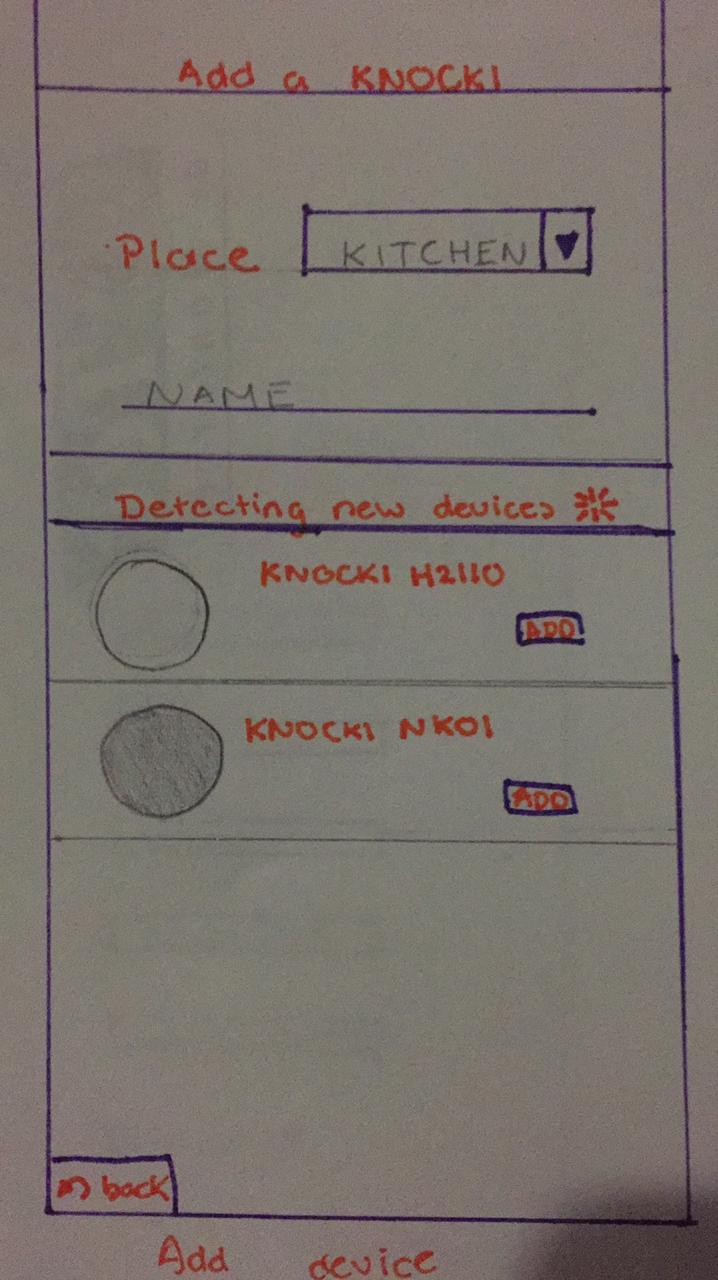 Add a KNOCKI
Place KITCHEN
NAME
Detecting new devices
KNOCKI H2110
ADD
KNOCKI NK01
ADD
back
Add device